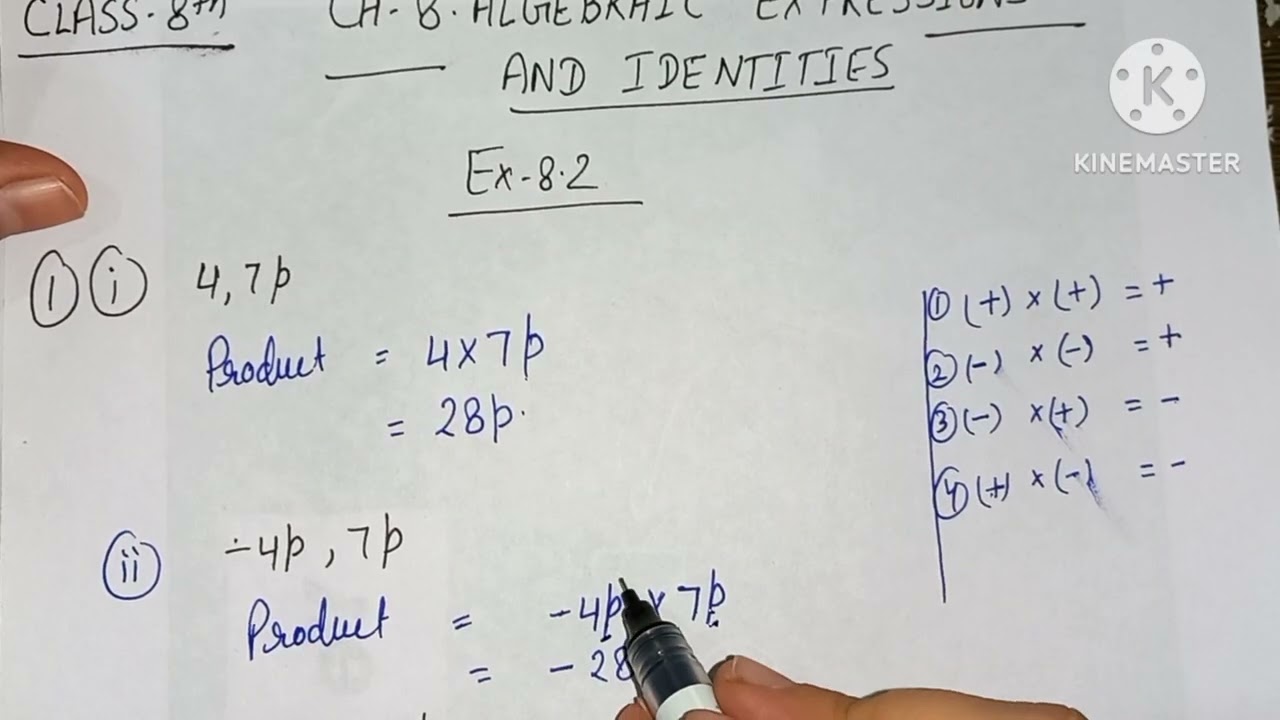 CLASS-8th CH-8. ALGEBRAIC EXPRESSIONS
AND IDENTITIES
K
KINEMASTER
Ex-8.2
① ⓘ 4, 7p
Product = 4×7p
= 28p.
① (+) × (+) = +
② (-) × (-) = +
③ (-) × (+) = -
④ (+) × (-) = -
ⓘⓘ -4p, 7p
Product = -4p × 7p
= -28